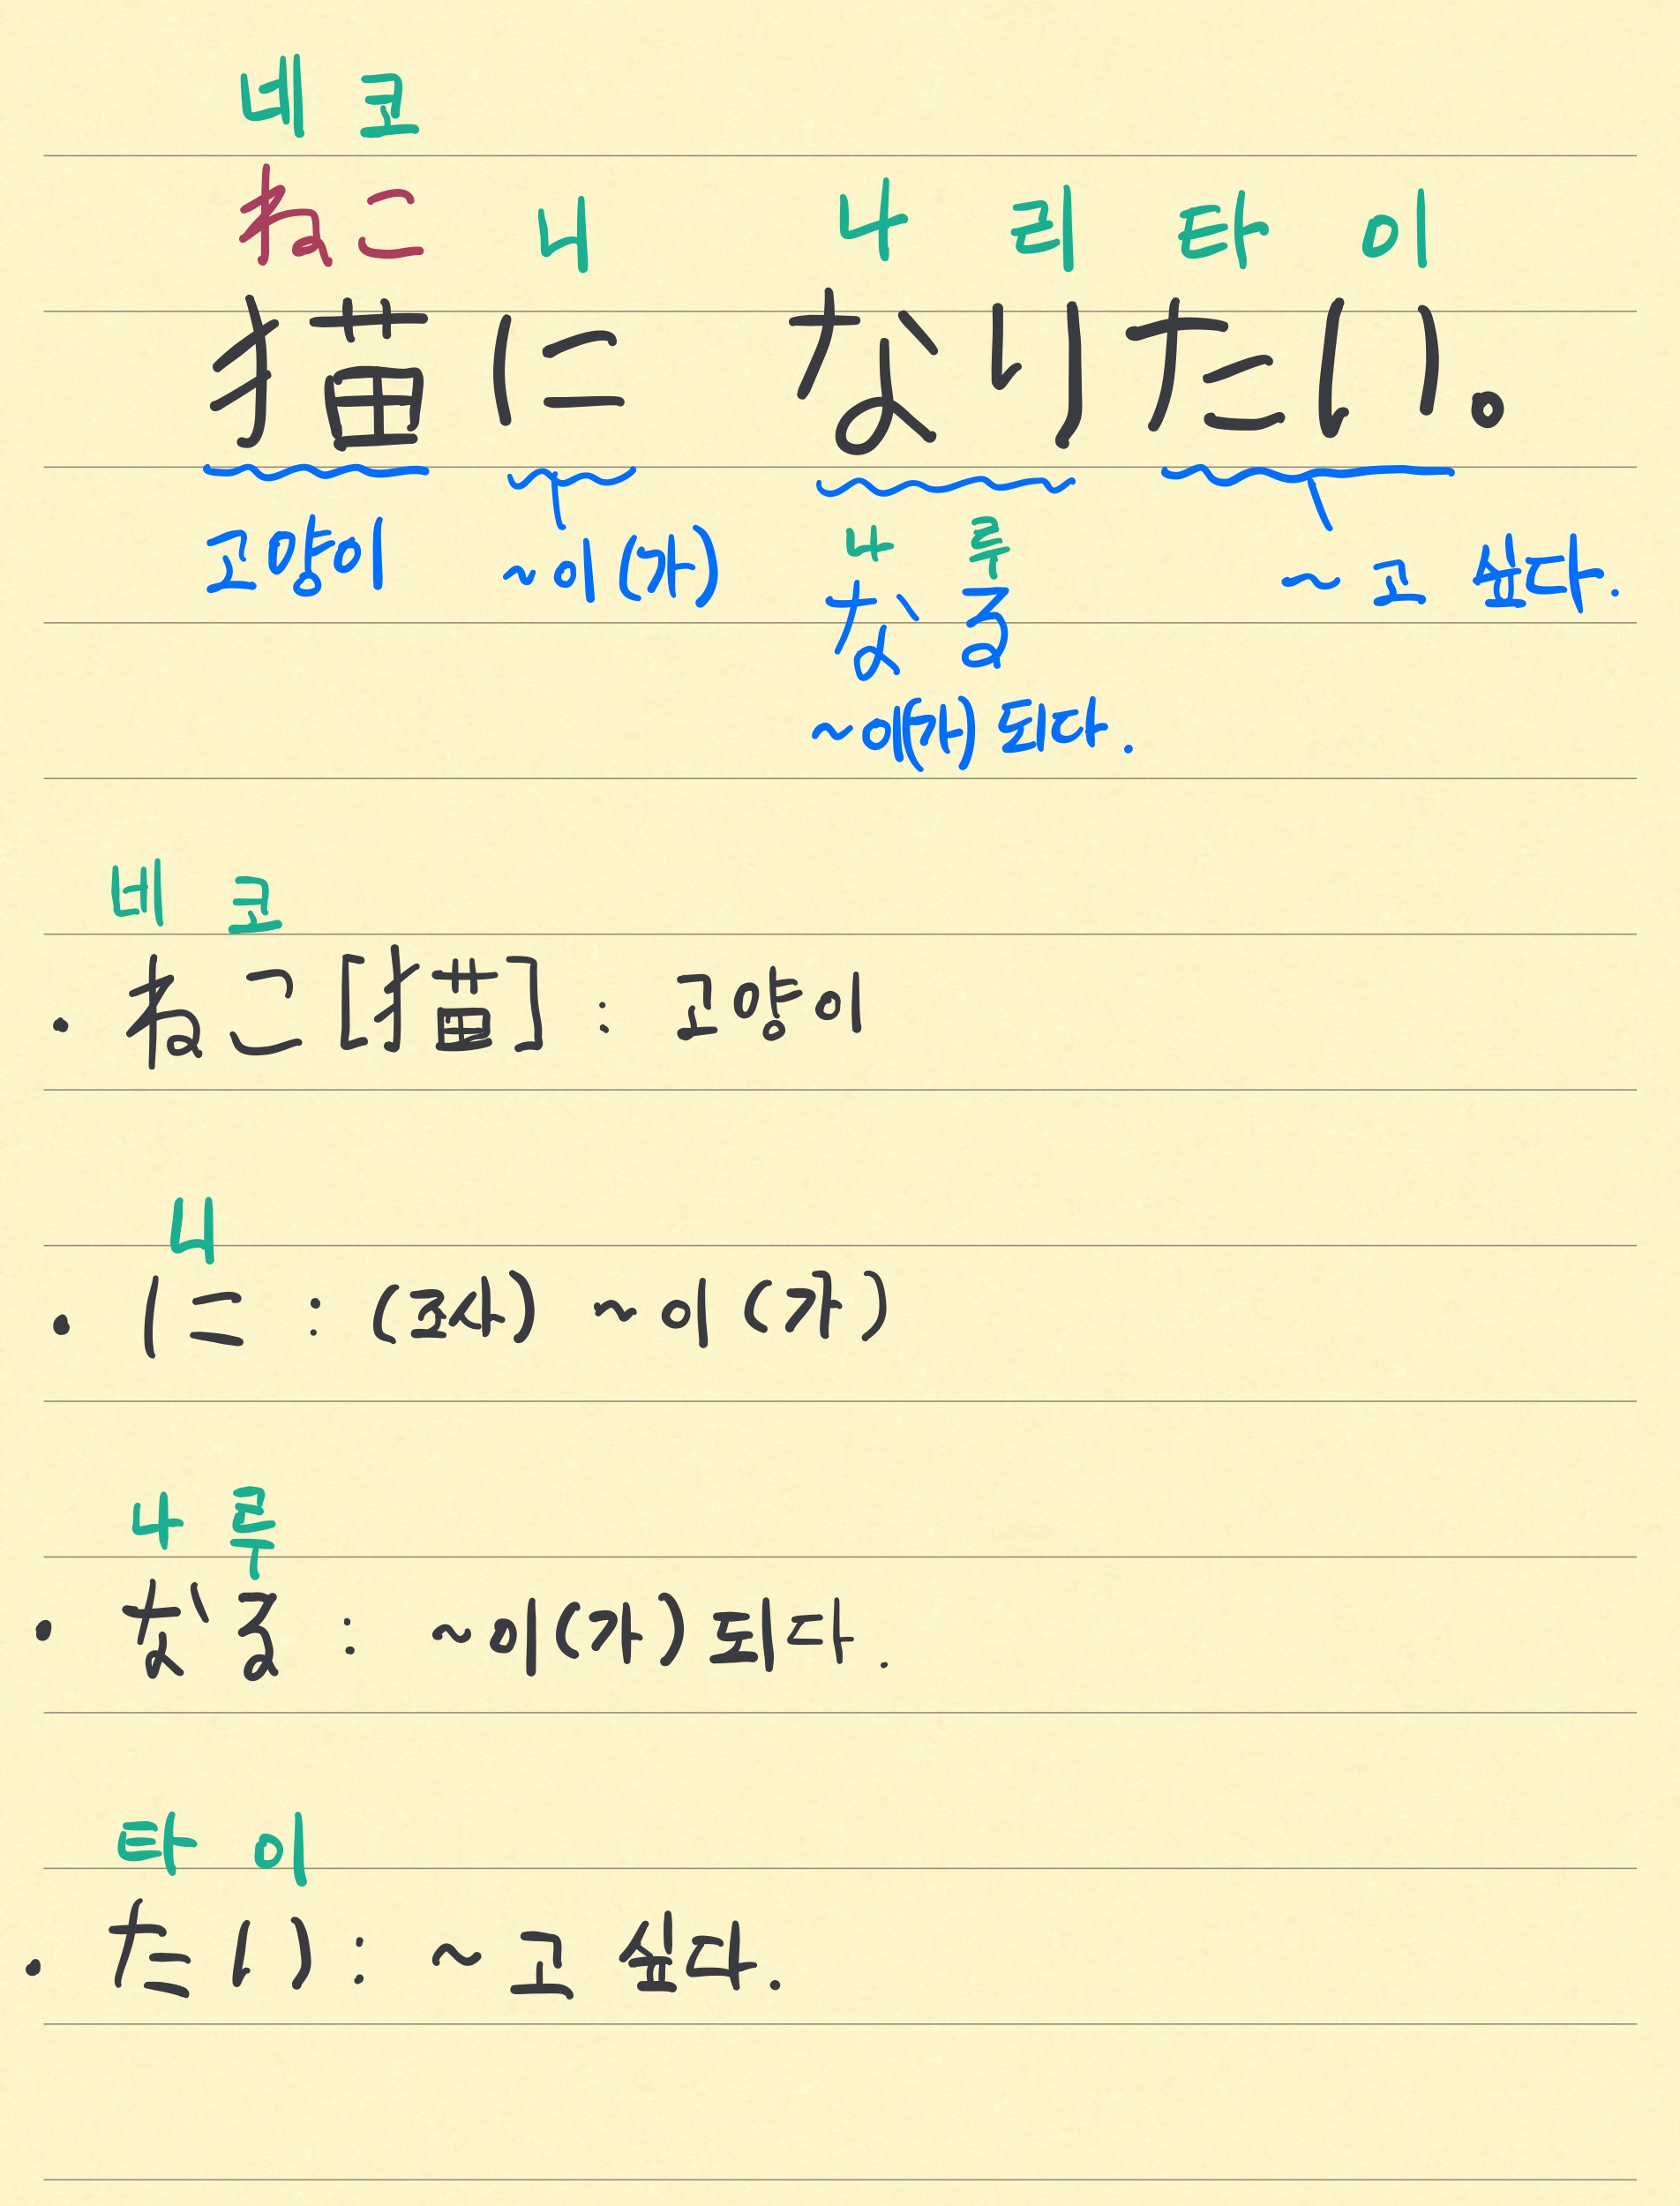 네 코
ねこ 니 나 리 타 이
猫に なりたい。
고양이 ~이(가) 나 루 ~고 싶다.
なる
~이(가) 되다.
네 코
• ねこ[猫] : 고양이
니
• に : (조사) ~이(가)
나 루
• なる : ~이(가) 되다.
타 이
• たい : ~고 싶다.